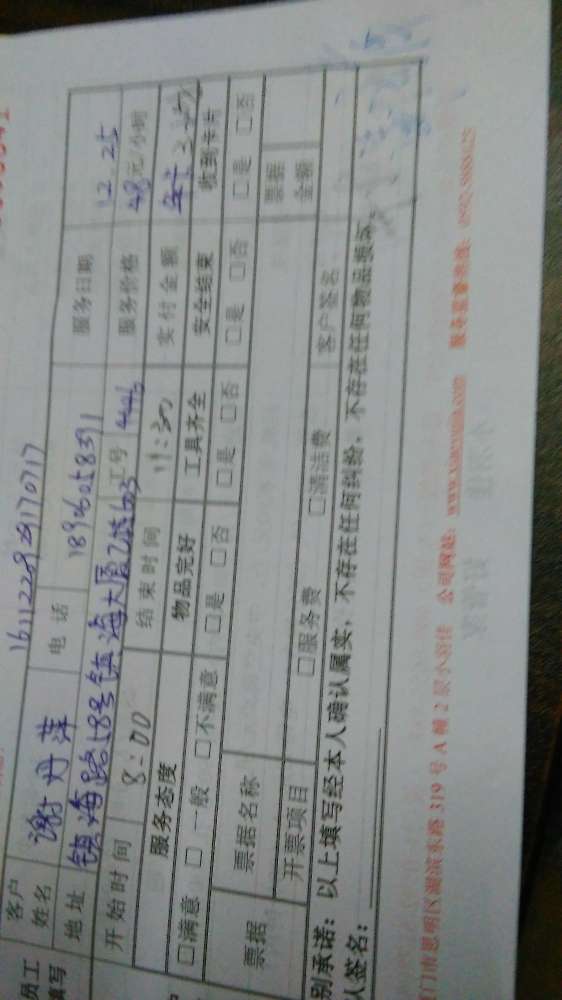 16112229291170717
员工
填写
客户
姓名 谢丹萍 电话 18960058391 服务日期 12.25
地址 镇海路58号镇海大厦乙楼603 工号 服务价格 48元/小时
开始时间 8:00 结束时间 11:30 实付金额
服务态度 物品完好 工具齐全 安全结束 收到卡片
□满意 □一般 □不满意 □是 □否 □是 □否 □是 □否 □是 □否
票据 票据名称 票据金额
开票项目 □服务费 □清洁费 客户签名
别承诺：以上填写经本人确认属实，不存在任何纠纷，不存在任何物品损坏。
人签名：
门市思明区湖滨东路 319 号 A 幢 2 层小羽佳 公司网址：www.xiaoyujia.com 服务监督热线：0592-